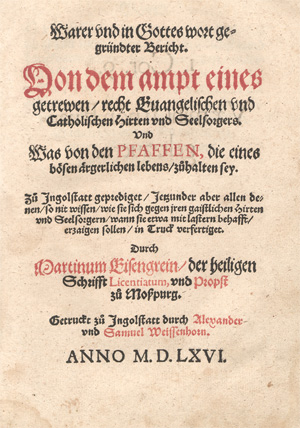 Warer vnd in Gottes wort ge-
gründter Bericht.
Von dem ampt eines
getrewen / recht Euangelischen vnd
Catholischen Hirten vnd Seelsorgers.
Vnd
Was von den PFAFFEN, die eines
bösen ärgerlichen lebens / zůhalten sey.
Zů Ingolstatt geprediget / Jetzunder aber allen de-
nen / so nit wissen / wie sie sich gegen jren gaistlichen Hirten
vnd Seelsorgern / wann sie etwa mit lastern behafft /
erzaigen sollen / in Truck verfertiget.
Durch
Martinum Eisengrein / der heiligen
Schrifft Licentiatum, vnd Propst
zů Moßpurg.
Getruckt zů Ingolstatt durch Alexander
vnd Samuel Weissenhorn.
ANNO M. D. LXVI.